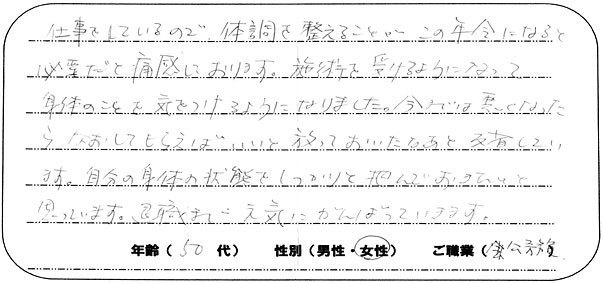 仕事をしているので、体調を整えることが この年令になると
必要だと痛感しております。施術を受けるようになって
身体のことを気をつけるようになりました。今までは悪くなった
らなおしてもらえばいいと放っておいたなあと反省してい
ます。自分の身体の状態をしっかりと把んでおきたいと
思っています。退職まで元気にがんばっていきます。
年齢（50代） 性別（男性・女性） ご職業（公務員）